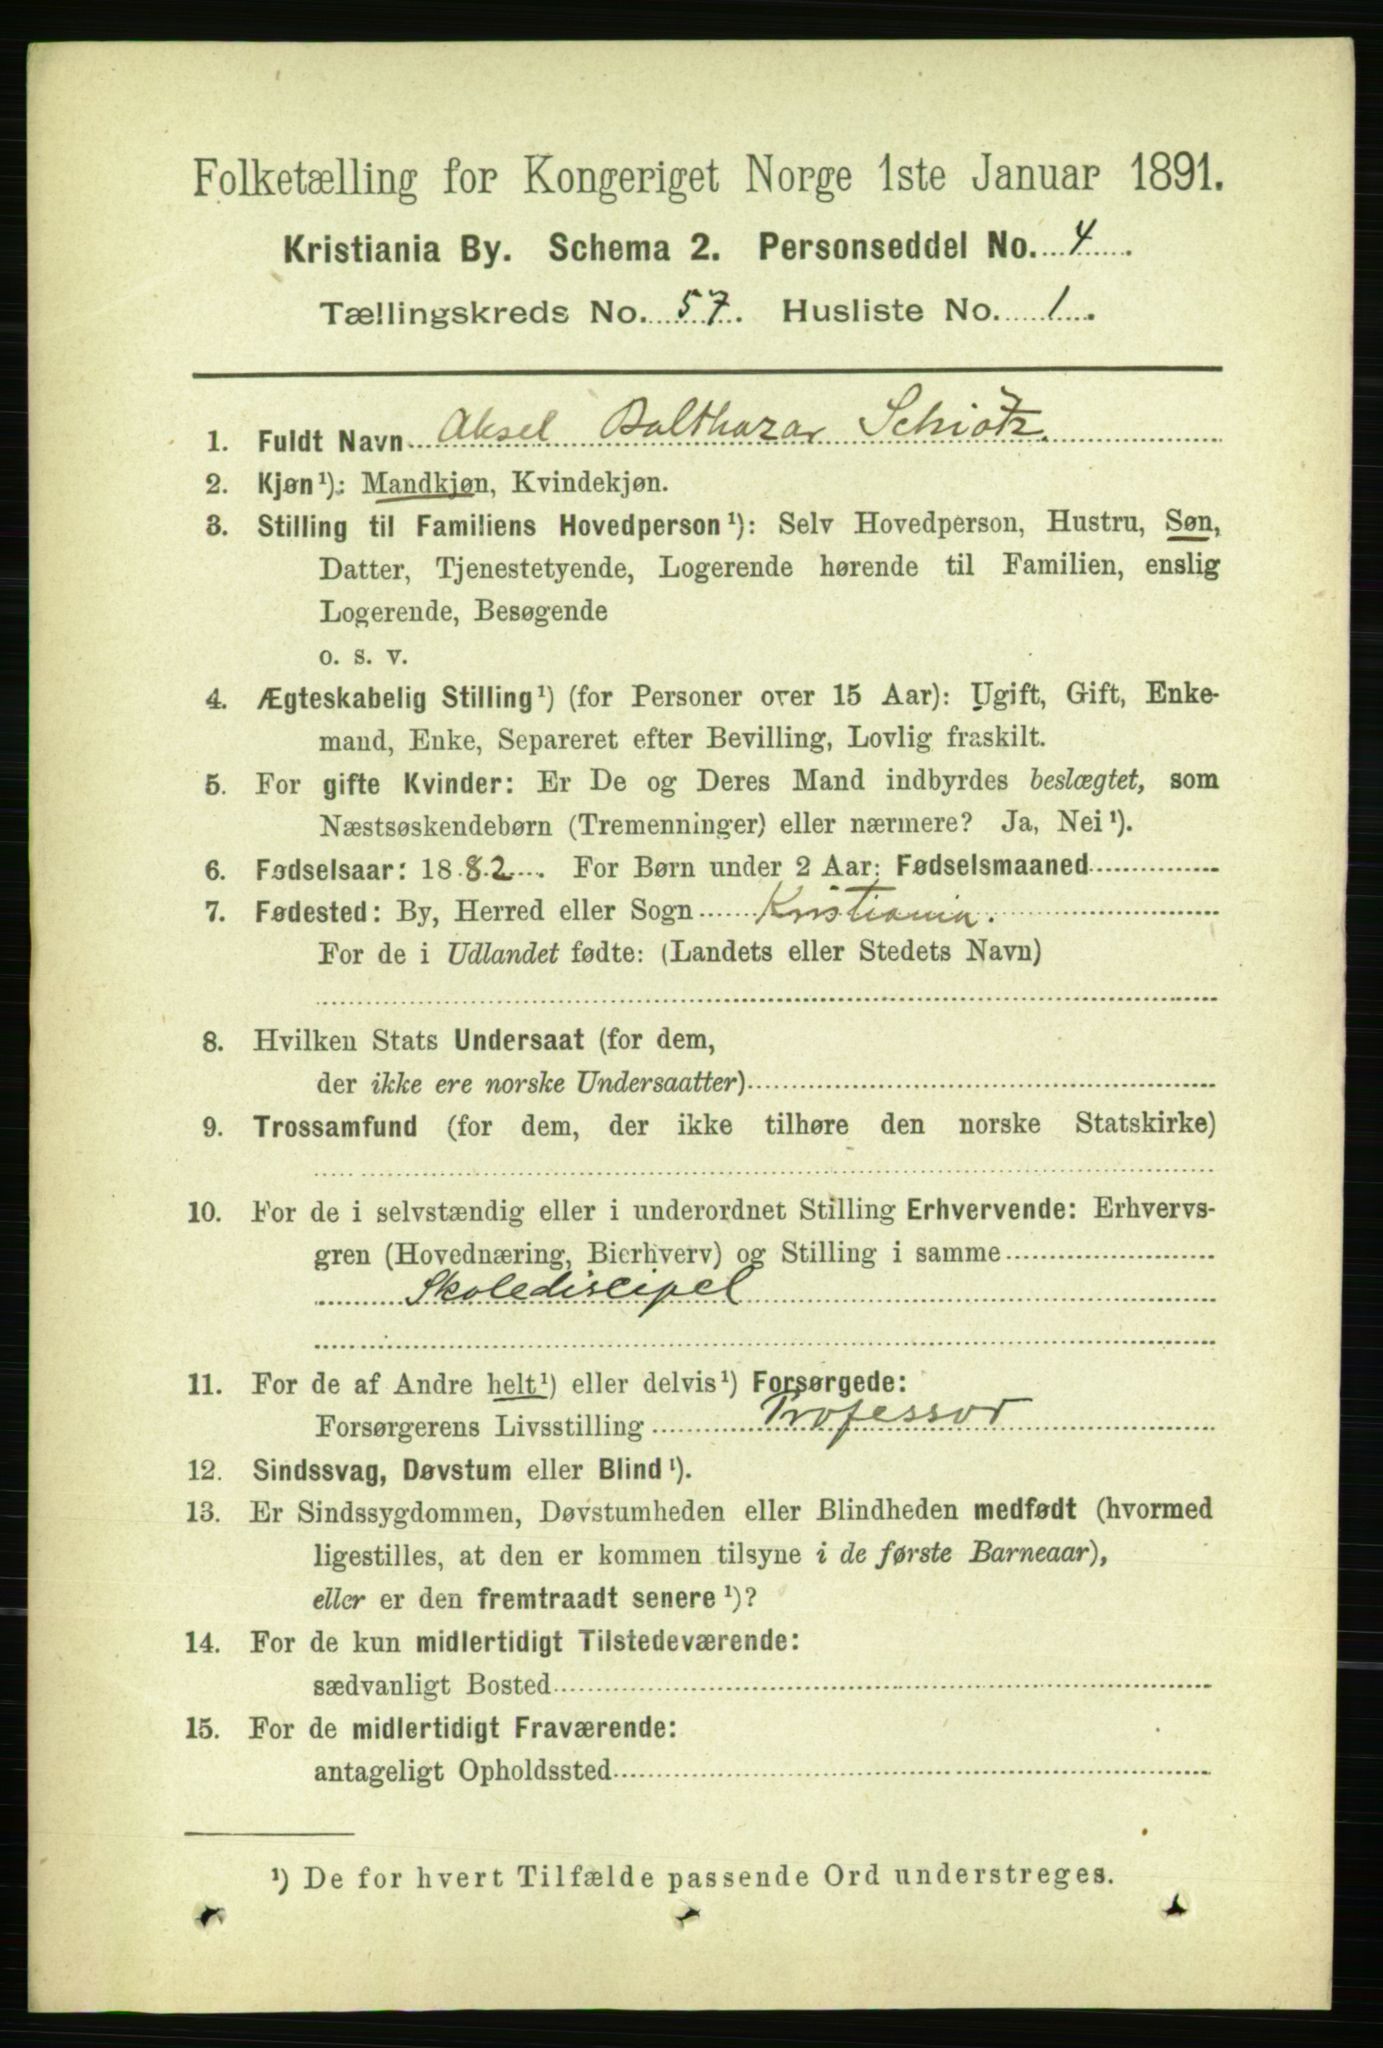 Folketælling for Kongeriget Norge 1ste Januar 1891.
Kristiania By. Schema 2. Personseddel No. 4.
Tællingskreds No. 57. Husliste No. 1.
1. Fuldt Navn Aksel Balthazar Schiøtz.
2. Kjøn¹): Mandkjøn, Kvindekjøn.
3. Stilling til Familiens Hovedperson¹): Selv Hovedperson, Hustru, Søn,
Datter, Tjenestetyende, Logerende hørende til Familien, enslig
Logerende, Besøgende
o. s. v.
4. Ægteskabelig Stilling¹) (for Personer over 15 Aar): Ugift, Gift, Enke-
mand, Enke, Separeret efter Bevilling, Lovlig fraskilt.
5. For gifte Kvinder: Er De og Deres Mand indbyrdes beslægtet, som
Næstsøskendebørn (Tremenninger) eller nærmere? Ja, Nei¹).
6. Fødselsaar: 1882. For Børn under 2 Aar: Fødselsmaaned
7. Fødested: By, Herred eller Sogn Kristiania.
For de i Udlandet fødte: (Landets eller Stedets Navn)
8. Hvilken Stats Undersaat (for dem,
der ikke ere norske Undersaatter)
9. Trossamfund (for dem, der ikke tilhøre den norske Statskirke)
10. For de i selvstændig eller i underordnet Stilling Erhvervende: Erhvervs-
gren (Hovednæring, Bierhverv) og Stilling i samme
Skolediscipel
11. For de af Andre helt¹) eller delvis¹) Forsørgede:
Forsørgerens Livsstilling Professor
12. Sindssvag, Døvstum eller Blind¹).
13. Er Sindssygdommen, Døvstumheden eller Blindheden medfødt (hvormed
ligestilles, at den er kommen tilsyne i de første Barneaar),
eller er den fremtraadt senere¹)?
14. For de kun midlertidigt Tilstedeværende:
sædvanligt Bosted
15. For de midlertidigt Fraværende:
antageligt Opholdssted
¹) De for hvert Tilfælde passende Ord understreges.